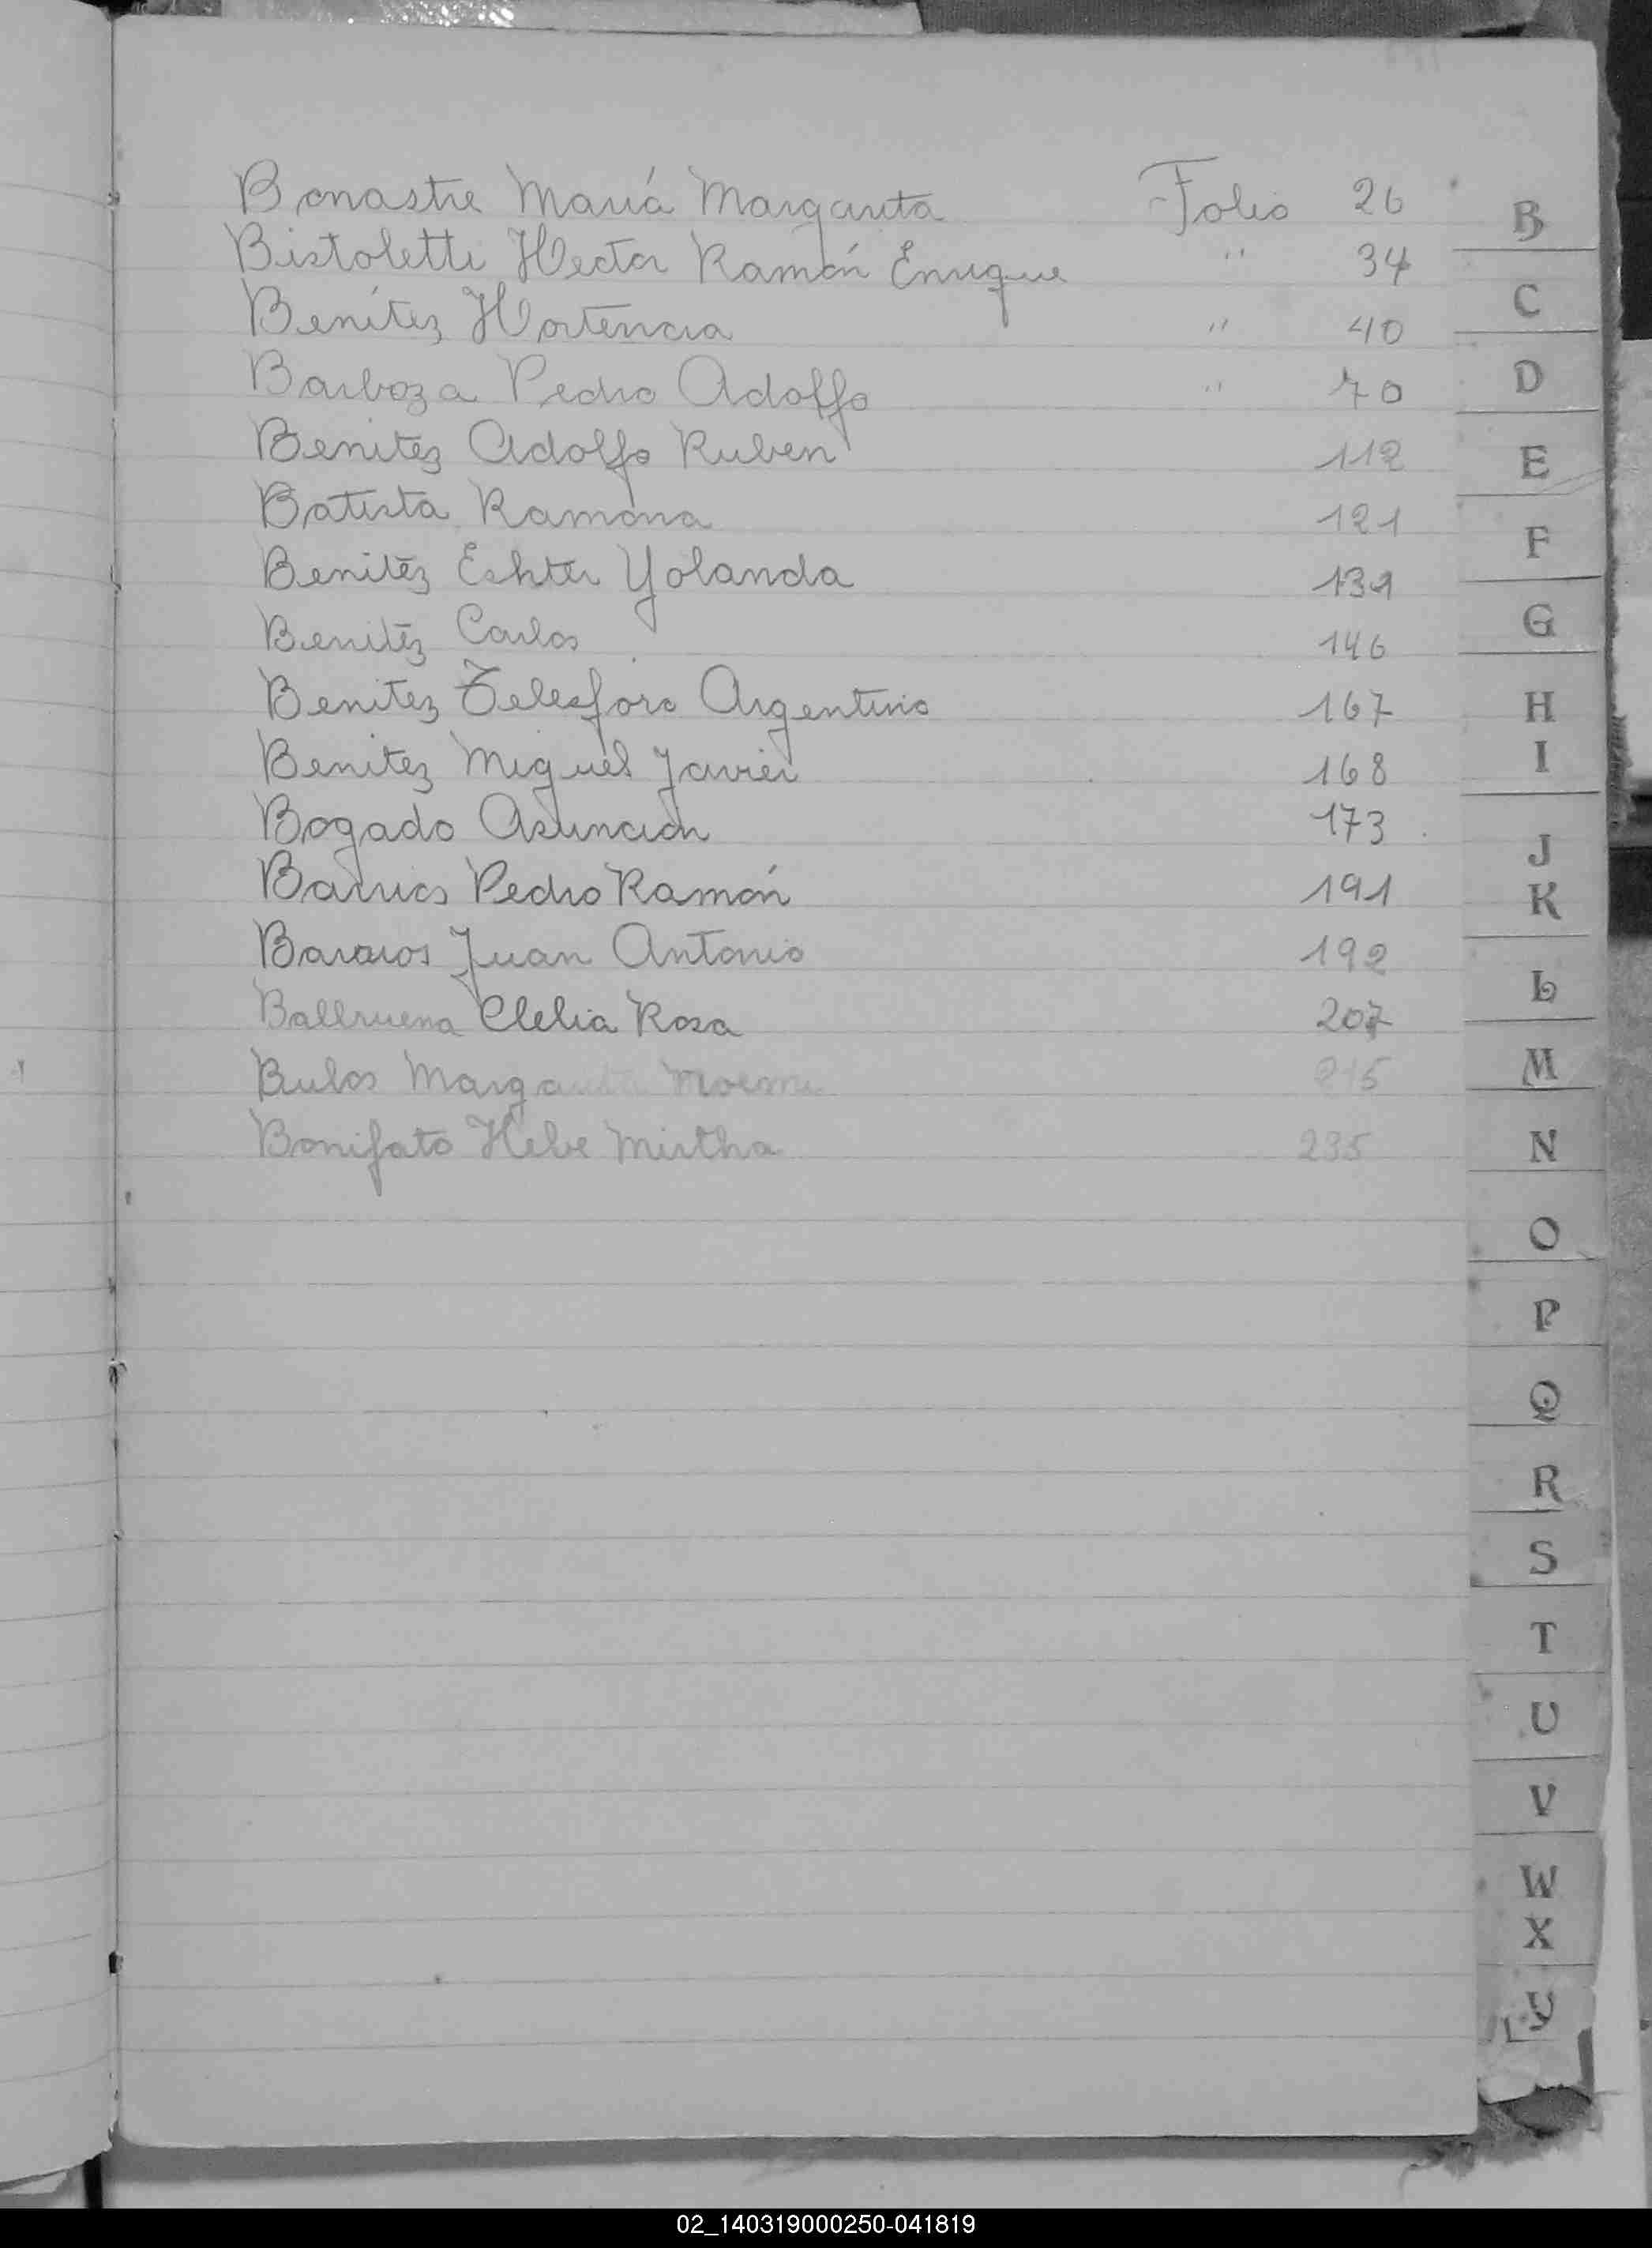 Bonastre María Margarita Folio 26
Bistoletti Hector Ramón Enrique " 34
Benítez Hortencia " 40
Barboza Pedro Adolfo " 70
Benitez Adolfo Ruben 112
Batista Ramona 121
Benitez Eshter Yolanda 131
Benitez Carlos 146
Benitez Telesforo Argentino 167
Benitez Miguel Javier 168
Bogado Asuncion 173
Barrios Pedro Ramón 191
Barrios Juan Antonio 192
Clelia Rosa 207
Bulos Margarita Noemi 215
Bonifato Hebe Mirtha 235
B
C
D
E
F
G
H
I
J
K
L
M
N
O
P
Q
R
S
T
U
V
W
X
Y
02_140319000250-041819